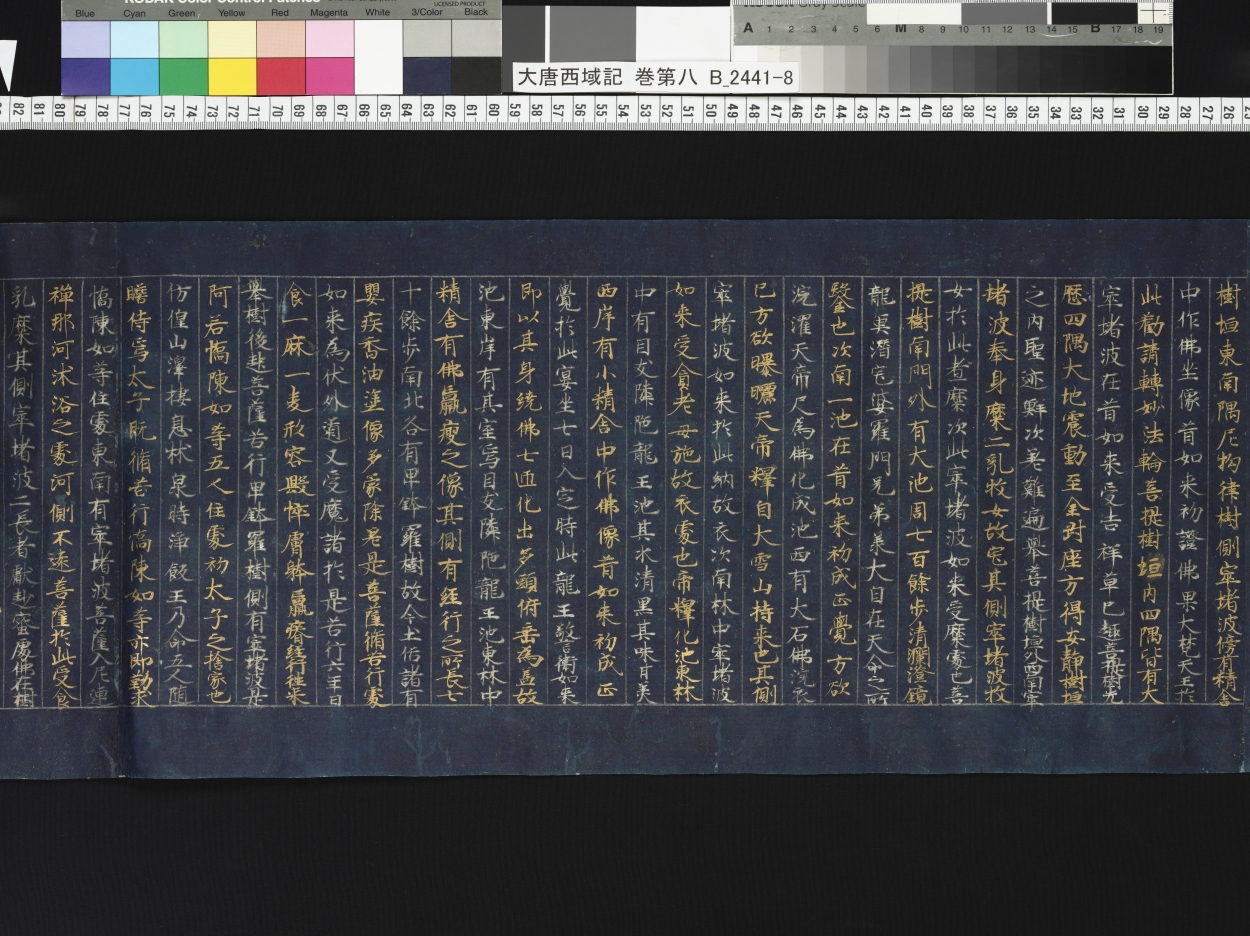 KODAK Color Control Patches
LICENSED PRODUCT
Blue Cyan Green Yellow Red Magenta White 3/Color Black
A 1 2 3 4 5 6 M 8 9 10 11 12 13 14 15 B 17 18 19
大唐西域記 巻第八 B_2441-8
82 81 80 79 78 77 76 75 74 73 72 71 70 69 68 67 66 65 64 63 62 61 60 59 58 57 56 55 54 53 52 51 50 49 48 47 46 45 44 43 42 41 40 39 38 37 36 35 34 33 32 31 30 29 28 27 26
樹垣東南隅尼拘律樹側窣堵波傍有精舍
中作佛坐像昔如来初證佛果大梵天王於
此勸請轉妙法輪菩提樹垣内四隅皆有大
窣堵波在昔如来受吉祥草已趣菩提樹先
歷四隅大地震動至金剛座方得安靜樹垣
之内聖迹鱗次差難遍舉菩提樹垣外西南窣
堵波奉身糜二乳牧女故宅其側窣堵波牧
女於此煮糜次此窣堵波如来受糜處也菩
提樹南門外有大池周七百餘歩清瀾澄鏡
龍魚潛宅婆羅門兄弟業大自在天命之所
鑿也次南一池在昔如来初成正覺方欲
浣濯天帝尺為佛化成池西有大石佛浣衣
已方欲曝曬天帝釋自大雪山持来也其側
窣堵波如来於此納故衣次南林中窣堵波
如来受貧老母施故衣處也帝釋化池東林
中有目支隣陁龍王池其水清黒其味甘美
西岸有小精舍中作佛像昔如来初成正
覺於此宴坐七日入定時此龍王警衛如来
即以其身繞佛七匝化出多頭俯垂為盖故
池東岸有其室焉目支隣陁龍王池東林中
精舍有佛羸瘦之像其側有經行之所長七
十餘歩南北各有卑鉢羅樹故今土俗諸有
嬰疾香油塗像多蒙除差是菩薩脩苦行處
如来為伏外道又受魔請於是苦行六年日
食一麻一麦形容顦悴膚骵羸瘠經行往来
攀樹後起菩薩苦行卑鉢羅樹側有窣堵波是
阿若憍陳如等五人住處初太子之捨家也
仿偟山澤棲息林泉時淨飯王乃命五人随
瞻侍焉太子既脩苦行憍陳如等亦即勤求
憍陳如等住處東南有窣堵波菩薩入尼連
禪那河沐浴之處河側不遠菩薩於此受食
乳糜其側窣堵波二長者獻麨蜜處佛在樹